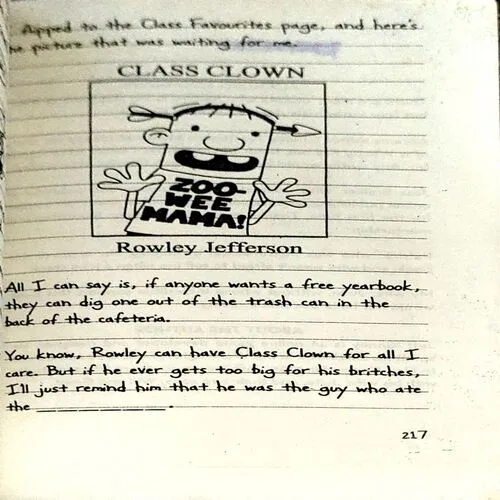 flipped to the Class Favourites page, and here's
the picture that was waiting for me.
CLASS CLOWN
ZOO-
WEE
MAMA!
Rowley Jefferson
All I can say is, if anyone wants a free yearbook,
they can dig one out of the trash can in the
back of the cafeteria.
You know, Rowley can have Class Clown for all I
care. But if he ever gets too big for his britches,
I'll just remind him that he was the guy who ate
the ______________.
217